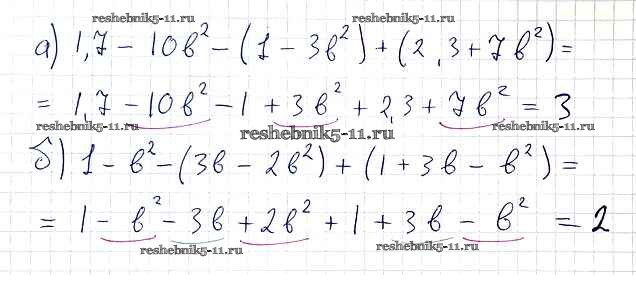 reshebnik5-11.ru reshebnik5-11.ru
а) 1,7 - 10в² - (1 - 3в²) + (2,3 + 7в²) =
= 1,7 - 10в² - 1 + 3в² + 2,3 + 7в² = 3
reshebnik5-11.ru reshebnik5-11.ru reshebnik5-11.ru
б) 1 - в² - (3в - 2в²) + (1 + 3в - в²) =
= 1 - в² - 3в + 2в² + 1 + 3в - в² = 2
reshebnik5-11.ru reshebnik5-11.ru